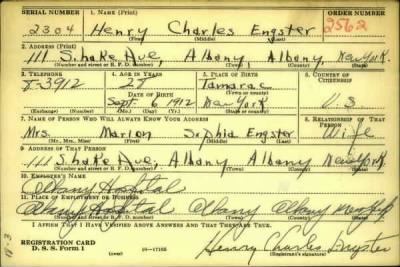 SERIAL NUMBER 1. NAME (Print) ORDER NUMBER
2304 Henry Charles Engster 2562
(First) (Middle) (Last)
2. ADDRESS (Print)
111 S. Lake Ave, Albany, Albany, New York
(Number and street or R. F. D. number) (Town) (County) (State)
3. TELEPHONE 4. AGE IN YEARS 5. PLACE OF BIRTH 6. COUNTRY OF CITIZENSHIP
8-3912 28 Tamarac
DATE OF BIRTH (Town or county)
Sept. 6, 1912 New York U.S
(Exchange) (Number) (Mo.) (Day) (Yr.) (State or country)
7. NAME OF PERSON WHO WILL ALWAYS KNOW YOUR ADDRESS 8. RELATIONSHIP OF THAT PERSON
Mrs. Marion Sophia Engster Wife
(Mr., Mrs., Miss) (First) (Middle) (Last)
9. ADDRESS OF THAT PERSON
111 S. Lake Ave, Albany Albany New York
(Number and street or R. F. D. number) (Town) (County) (State)
10. EMPLOYER'S NAME
Albany Hospital
11. PLACE OF EMPLOYMENT OR BUSINESS
Albany Hospital Albany Albany New York
(Number and street or R. F. D. number) (Town) (County) (State)
I AFFIRM THAT I HAVE VERIFIED ABOVE ANSWERS AND THAT THEY ARE TRUE.
REGISTRATION CARD
D. S. S. Form 1 (over) 16—17105 Henry Charles Engster
(Registrant's signature)